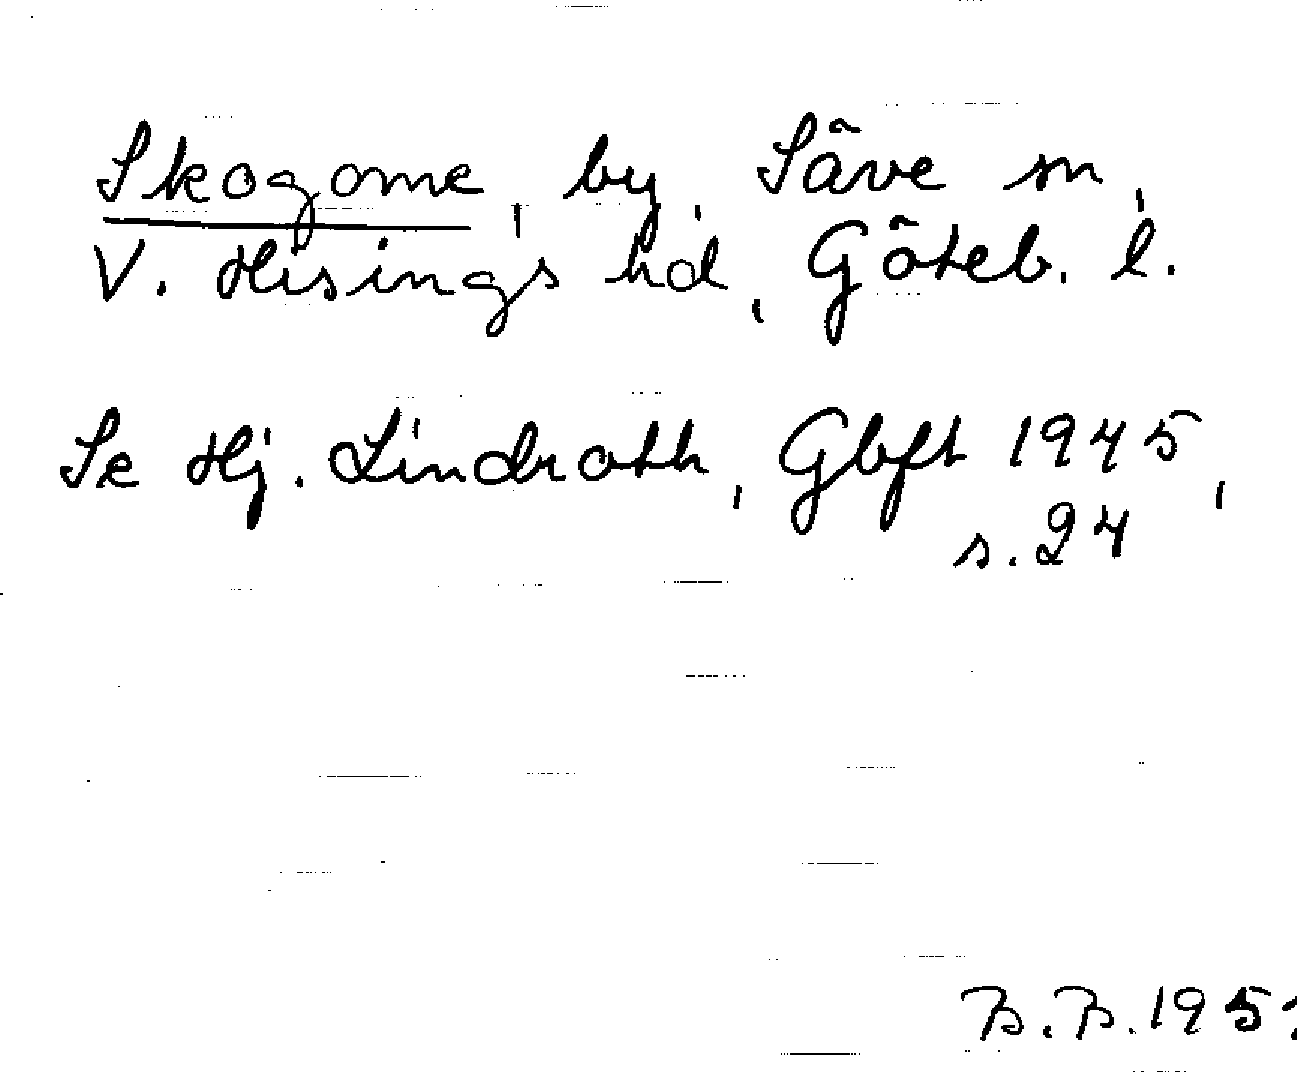 Skogome, by, Säve sn,
V. Hisings hd, Göteb. l.
Se Hj. Lindroth, Gbft 1945,
s. 24
B. B. 195